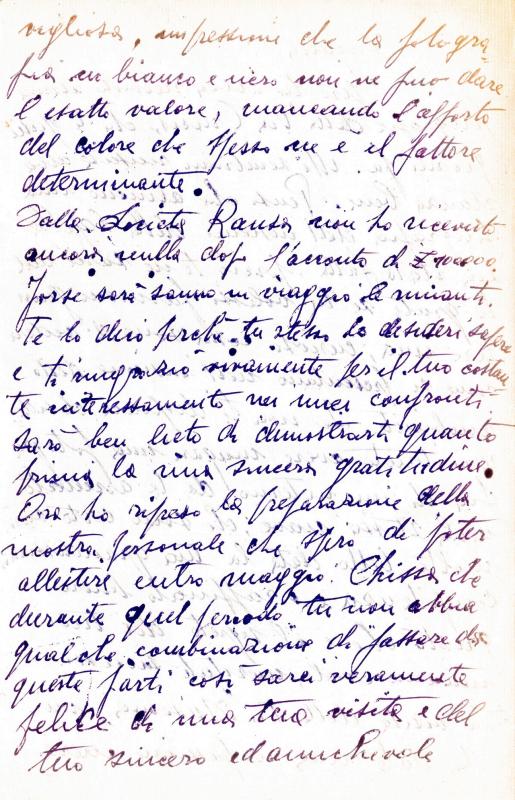 vigliosa, impressione che la fotogra-
fia in bianco e nero non ne può dare
l'esatto valore, mancando l'apporto
del colore che spesso ne è il fattore
determinante.
Dalla Società Ransa non ho ricevuto
ancora nulla dopo l'acconto di £ 100000.
Forse sarà saranno in viaggio i rimanenti.
Te lo dico perchè tu stesso lo desideri sapere
e ti ringrazio vivamente per il tuo costan
te interessamento nei miei confronti.
sarò ben lieto di dimostrarti quanto
prima la mia sincera gratitudine.
Ora ho ripreso la preparazione della
mostra personale che spero di poter
allestire entro maggio. Chissà che
durante quel periodo tu non abbia
qualche combinazione di passare da
queste parti così sarei veramente
felice di una tua visita e del
tuo sincero ed amichevole